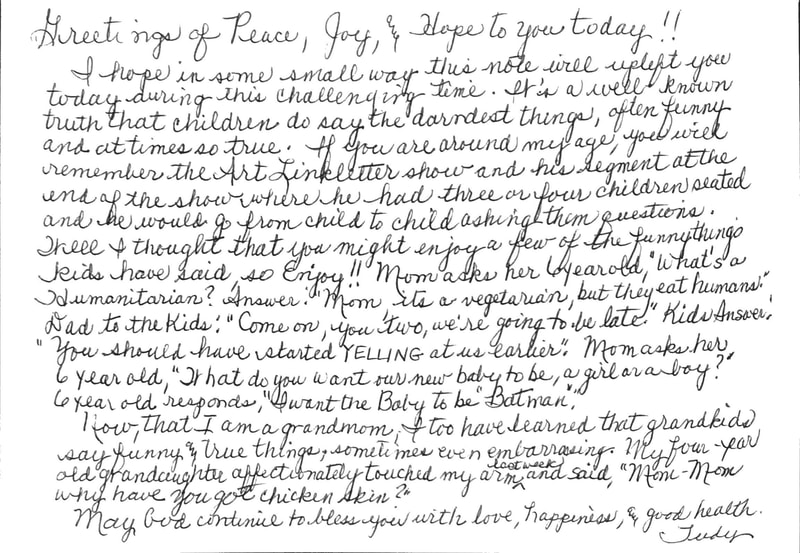 Greetings of Peace, Joy, & Hope to you today!!
I hope in some small way this note will uplift you
today during this challenging time. It's a well known
truth that children do say the darndest things, often funny
and at times so true. If you are around my age, you will
remember the Art Linkletter show and his segment at the
end of the show where he had three or four children seated
and he would go from child to child asking them questions.
Well I thought that you might enjoy a few of the funny things
kids have said, so Enjoy!! Mom asks her 6 year old, "What's a
Humanitarian? Answer: "Mom, its a vegetarian, but they eat humans."
Dad to the Kids: "Come on, you two, we're going to be late." Kids Answer:
"You should have started YELLING at us earlier". Mom asks her
6 year old, "What do you want our new baby to be, a girl or a boy?"
6 year old responds, "I want the Baby to be "Batman"."
Now, that I am a grandmom, I too have learned that grandkids
say funny & true things, sometimes even embarrasing. My four-year
old grandaughter affectionately touched my arm last week and said, "Mom-Mom
why have you got chicken skin?"
May God continue to bless you with love, happiness, & good health.
Judy